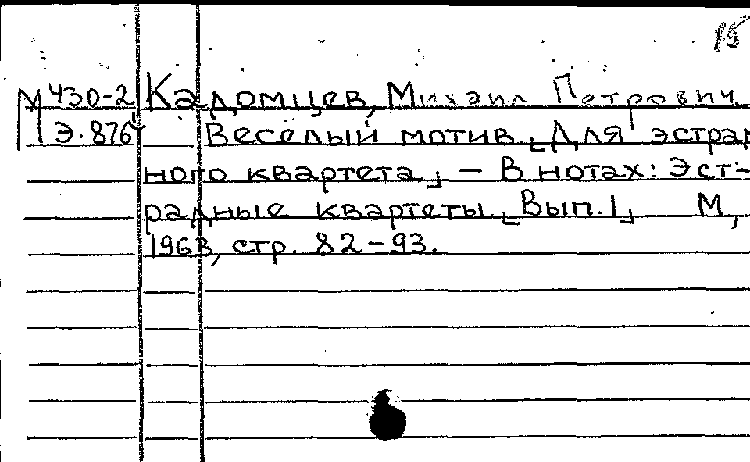 15
М 430-2 Кадомцев, Михаил Петрович
Э.876 Веселый мотив. [Для эстрад
ного квартета]. - В нотах: Эст-
радные квартеты. [Вып. I] М,
1963, стр. 82-93.